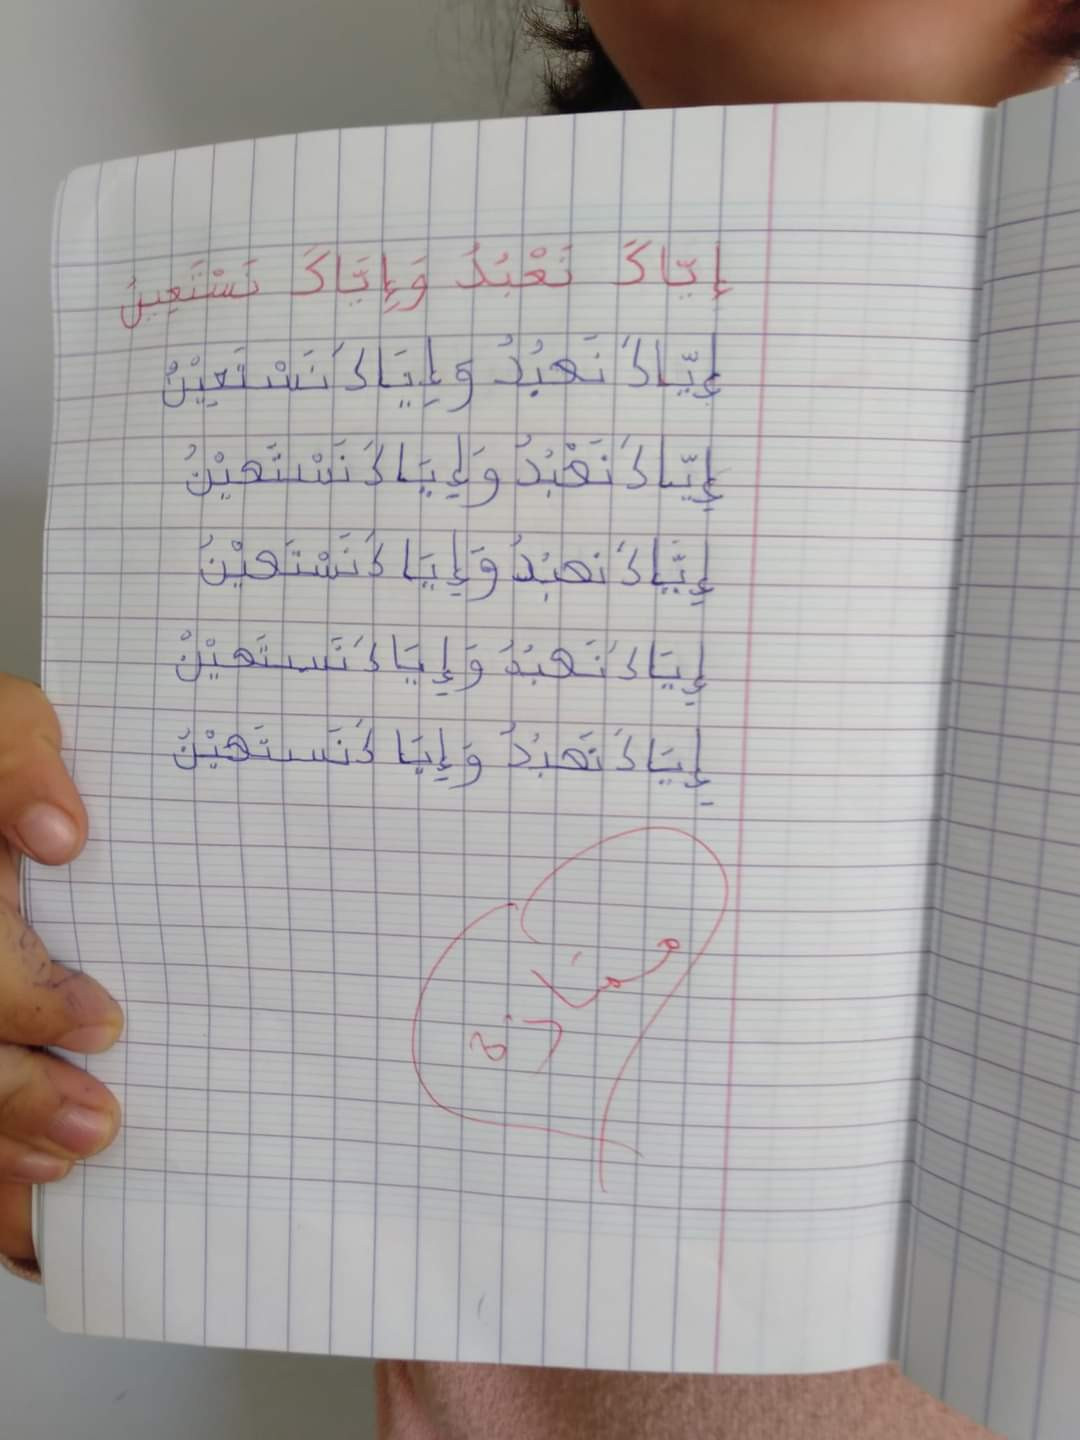 إِيَّاكَ نَعْبُدُ وَإِيَّاكَ نَسْتَعِينُ
إِيّاكَ نَعبُدُ وَإِيَاكَ نَسْتَعِيْنُ
إِيّاكَ نَعْبُدُ وَإِيَاكَ نَسْتَعيْنُ
إِيَّاكَ نَعبُدُ وَإِيَاكَ نَسْتَعيْنُ
إِيَاكَ نَعبُدُ وَإِيَاكَ نَستَعيْنْ
إِيَاكَ نَعبُدُ وَإِيَاكَ نَستَعيْنُ